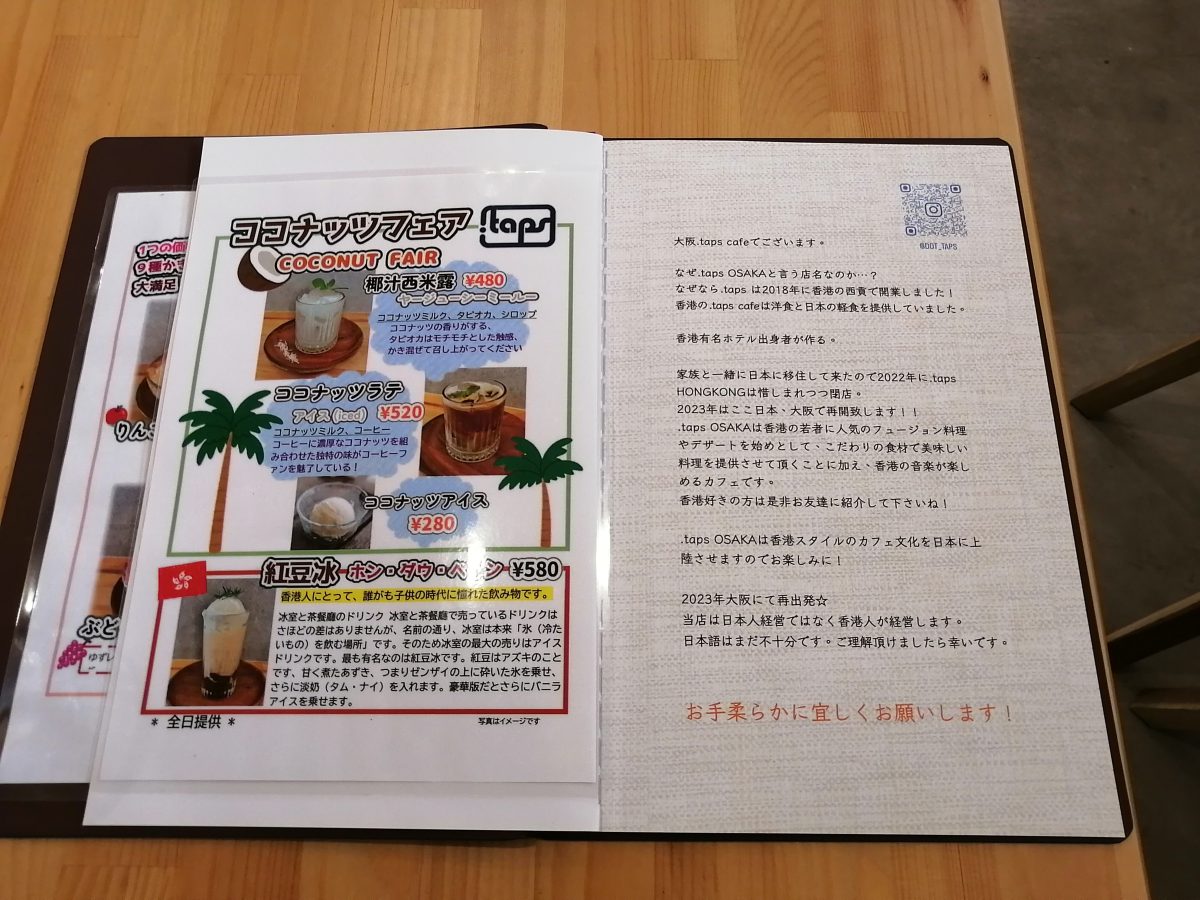 1つの価
9種かき
大満足
りんご
ぶど
ゆずレ
ココナッツフェア
.taps
COCONUT FAIR
椰汁西米露 ¥480
ヤージューシーミールー
ココナッツミルク、タピオカ、シロップ
ココナッツの香りがする、
タピオカはモチモチとした触感、
かき混ぜて召し上がってください
ココナッツラテ
アイス(iced) ¥520
ココナッツミルク、コーヒー
コーヒーに濃厚なココナッツを組
み合わせた独特の味がコーヒーフ
ァンを魅了している!
ココナッツアイス
¥280
紅豆冰 ホン・ダウ・ベイン ¥580
香港人にとって、誰がも子供の時代に憧れた飲み物です。
冰室と茶餐廳のドリンク 冰室と茶餐廳で売っているドリンクは
さほどの差はありませんが、名前の通り、冰室は本来「氷(冷た
いもの)を飲む場所」です。そのため冰室の最大の売りはアイス
ドリンクです。最も有名なのは紅豆冰です。紅豆はアズキのこと
です、甘く煮たあずき、つまりゼンザイの上に砕いた氷を乗せ、
さらに淡奶(タム・ナイ)を入れます。豪華版だとさらにバニラ
アイスを乗せます。
* 全日提供 *
写真はイメージです
@DOT_TAPS
大阪.taps cafeでございます。
なぜ.taps OSAKAと言う店名なのか…?
なぜなら.taps は2018年に香港の西貢で開業しました!
香港の.taps cafeは洋食と日本の軽食を提供していました。
香港有名ホテル出身者が作る。
家族と一緒に日本に移住して来たので2022年に.taps
HONGKONGは惜しまれつつ閉店。
2023年はここ日本、大阪で再開致します!!
.taps OSAKAは香港の若者に人気のフュージョン料理
やデザートを始めとして、こだわりの食材で美味しい
料理を提供させて頂くことに加え、香港の音楽が楽し
めるカフェです。
香港好きの方は是非お友達に紹介して下さいね!
.taps OSAKAは香港スタイルのカフェ文化を日本に上
陸させますのでお楽しみに!
2023年大阪にて再出発☆
当店は日本人経営ではなく香港人が経営します。
日本語はまだ不十分です。ご理解頂けましたら幸いです。
お手柔らかに宜しくお願いします!